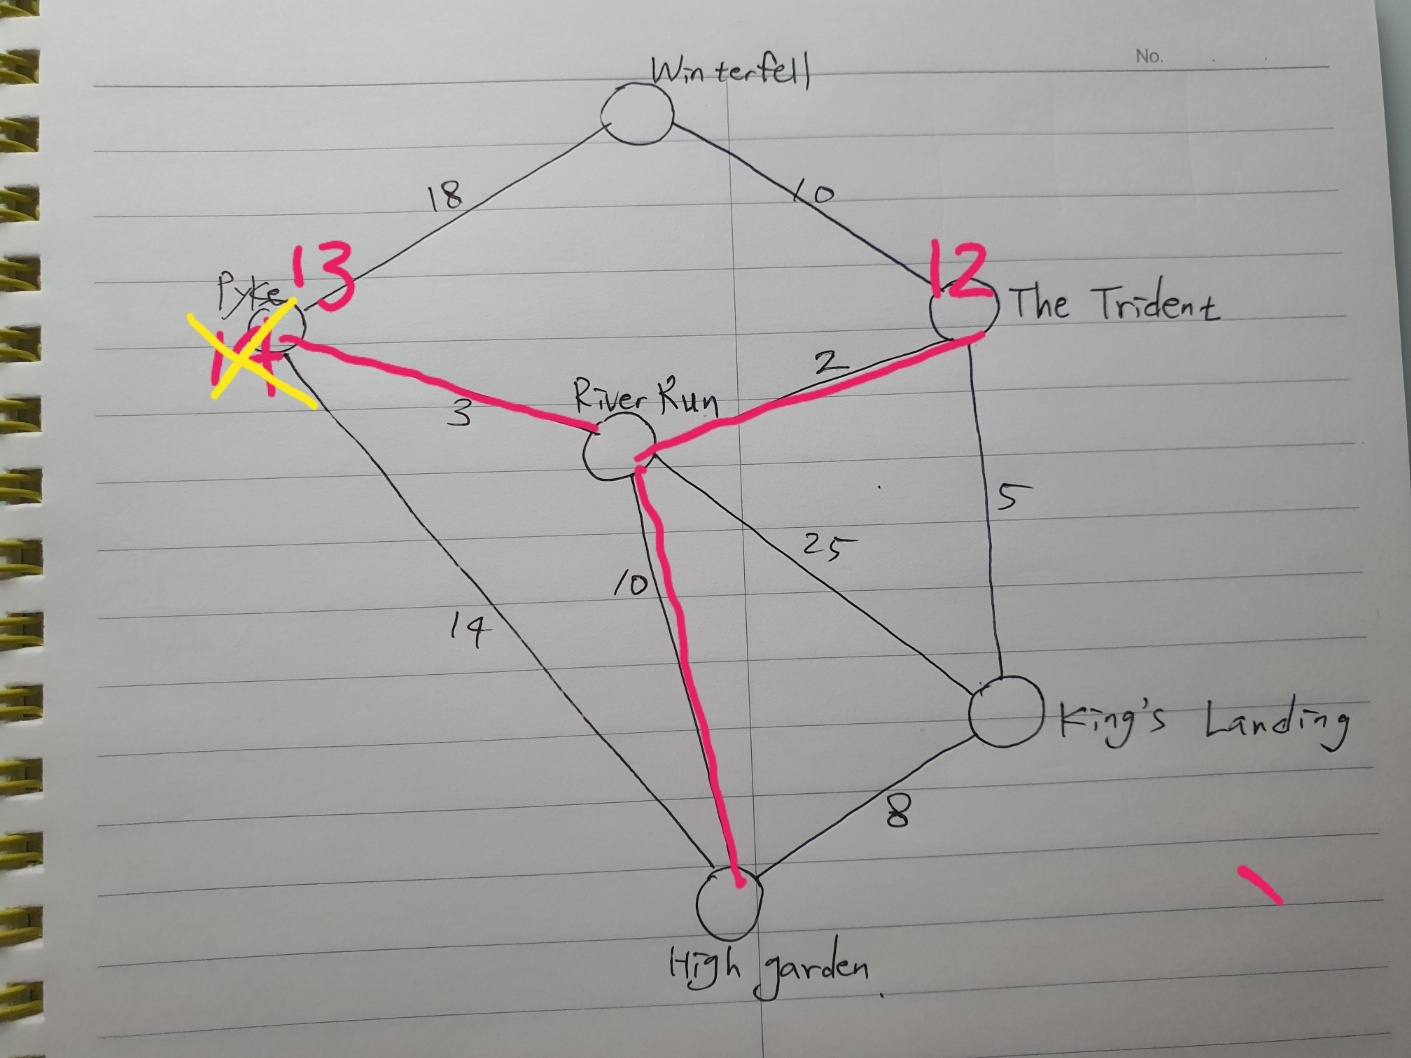 No.
Winterfell
18
10
13
12
Pyke
14
The Trident
2
River Run
3
5
25
10
14
King's Landing
8
High garden